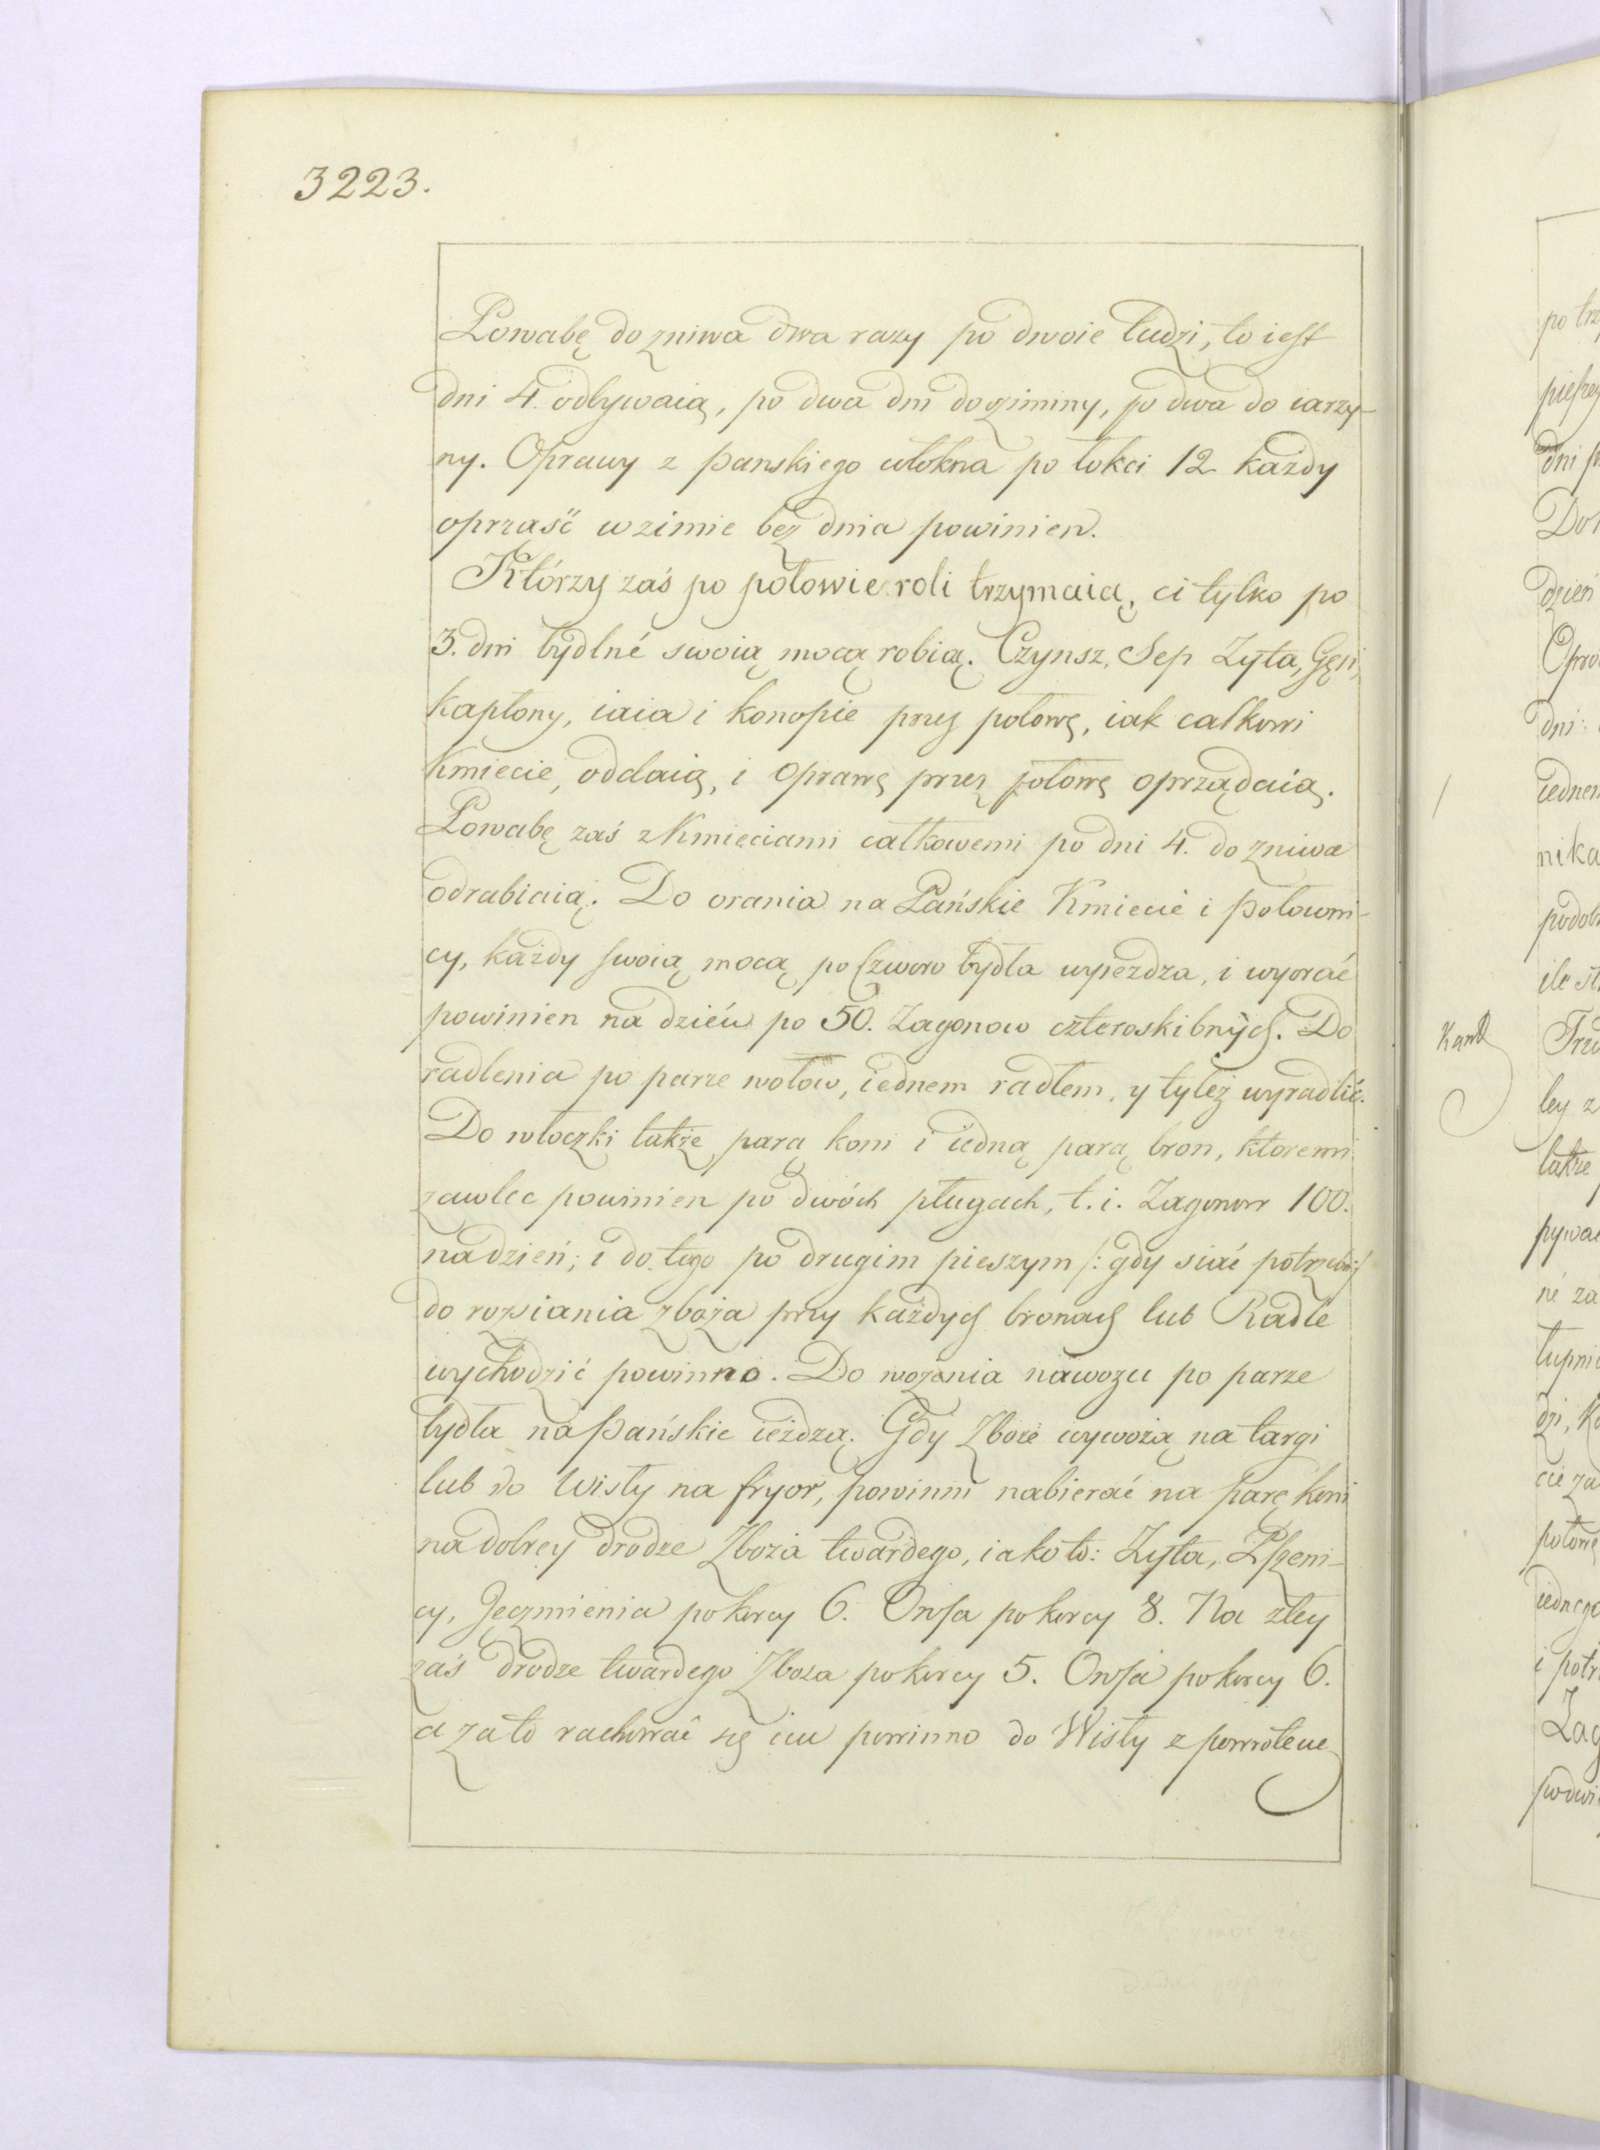 3223.
Powabę do zniwa dwa razy po dwoie ludzi, to iest
dni 4. odbywaią, po dwa dni do ziminy, po dwa do iarzy-
ny. Oprawy z pańskiego włokna po łokci 12 każdy
oprzaść w zimie bez dnia powinien.
Którzy zaś po połowie roli trzymaią, ci tylko po
3. dni bydlné swoią mocą robią. Czynsz, Sep Zyta, Gęsi,
kapłony, iaia i konopie przez połowę, iak całkowi
Kmiecie, oddaią, i Oprawę przez połowę oprządaią.
Powabę zaś z Kmieciami całkowemi po dni 4. do zniwa
odrabiaią. Do orania na Pańskie Kmiecie i połowni-
cy, każdy swoią mocą po czworo bydła wyiezdza, i wyorać
powinien na dzień po 50. Zagonow czteroskibnych. Do
radlenia po parze wołow, iednem radłem, y tyleż wyradlić.
Do włoczki także parą koni i iedną parą bron, ktoremi
zawlec powinien po dwóch pługach, t. i. Zagonow 100.
na dzień; i do tego po drugim pieszym /: gdy siać potrzeba :/
do rozsiania zboża przy każdych bronach lub Radle
wychodzić powinno. Do wożenia nawozu po parze
bydła na Pańskie ieżdzą. Gdy Zboże wywożą na targi
lub do Wisły na fryor, powinni nabierać na parę koni
na dobrey drodze Zboża twardego, iako to: Zyta, Pszeni-
cy, Jęczmienia po korcy 6. Owsa po korcy 8. Na złey
zaś drodze twardego Zboza po korcy 5. Owsa po korcy 6.
a za to rachować się im powinno do Wisły z powrotem
Kant